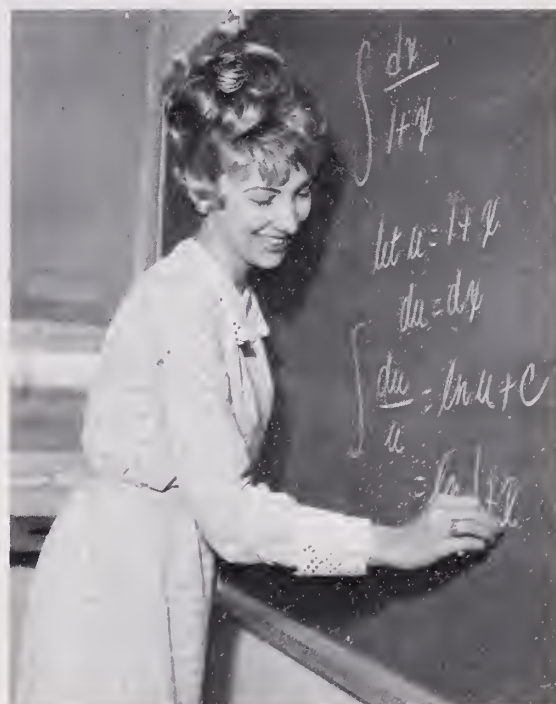 ∫ dx/1+x
let u = 1+x
du = dx
∫ du/u = ln u + C
= ln 1+x